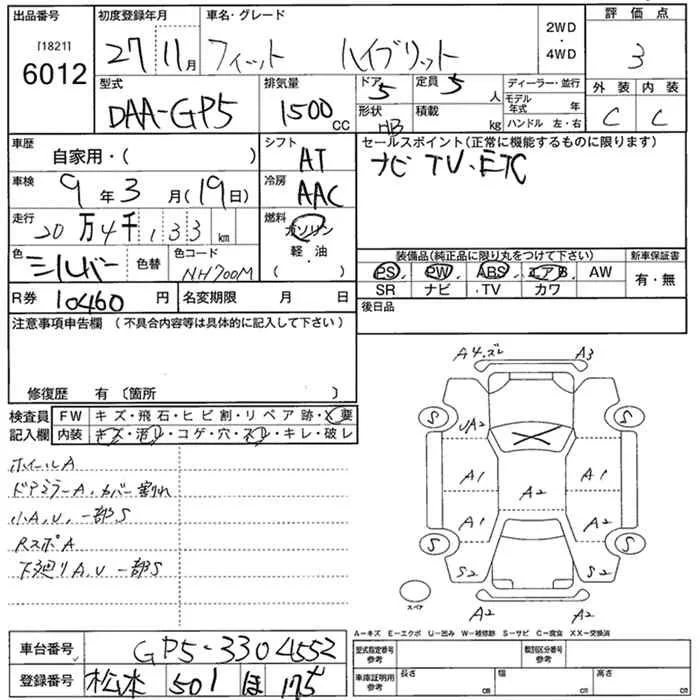 出品番号 [1821] 6012
初度登録年月 27年 11月
車名・グレード フィット ハイブリット
2WD・4WD
評価点 3
型式 DAA-GP5
排気量 1500 CC
ドア 5
定員 5 人
形状 HB
積載 kg
ディーラー・並行
モデル年式 年
ハンドル 左・右
外装 C
内装 C
車歴 自家用・( )
シフト AT
セールスポイント(正常に機能するものに限ります)
ナビ TV・ETC
車検 9年 3月(19日)
冷房 AAC
走行 20万4千133km
燃料 ガソリン・軽油 ( )
色 シルバー
色替
色コード NH700M
装備品(純正品に限り丸をつけて下さい)
新車保証書 有・無
PS PW ABS エアB AW
SR ナビ ・TV カワ
R券 10460円
名変期限 月 日
後日品
注意事項申告欄 (不具合内容等は具体的に記入して下さい)
修復歴 有 〔箇所 〕
検査員記入欄
FW キズ・飛石・ヒビ割・リペア跡・X要
内装 キズ・汚れ・コゲ・穴・スレ・キレ・破レ
ホイールA
ドアミラーA、カバー割れ
小A、U、一部S
RスポA
下廻りA、U一部S
A4.ズレ A3
S UA2 S
A1 A1
A2
A1 A2
S S
S2 S2
スペア
A2 A2
A-キズ E-エクボ U-凹み W-補修跡 S-サビ C-腐食 XX-交換済
車台番号 GP5-3304552
型式指定番号 参考
類別区分番号 参考
登録番号 松本 501 ほ 175
車庫証明用 参考
長さ cm
幅 cm
高さ cm